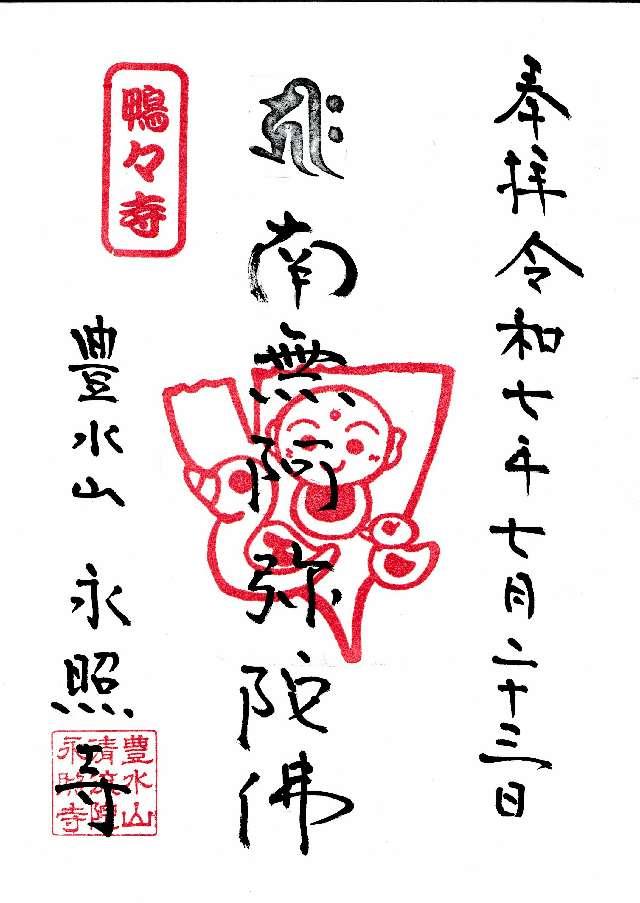 奉拝令和七年七月二十三日
南無阿弥陀佛
鴨々寺
豊水山 永照寺
豊水山
清涼院
永照寺